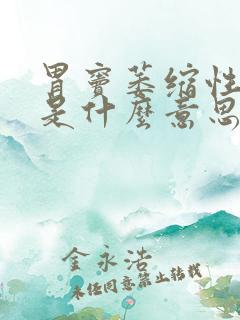 胃窦萎缩性
是什麼意思
金永浩
未经同意禁止转载